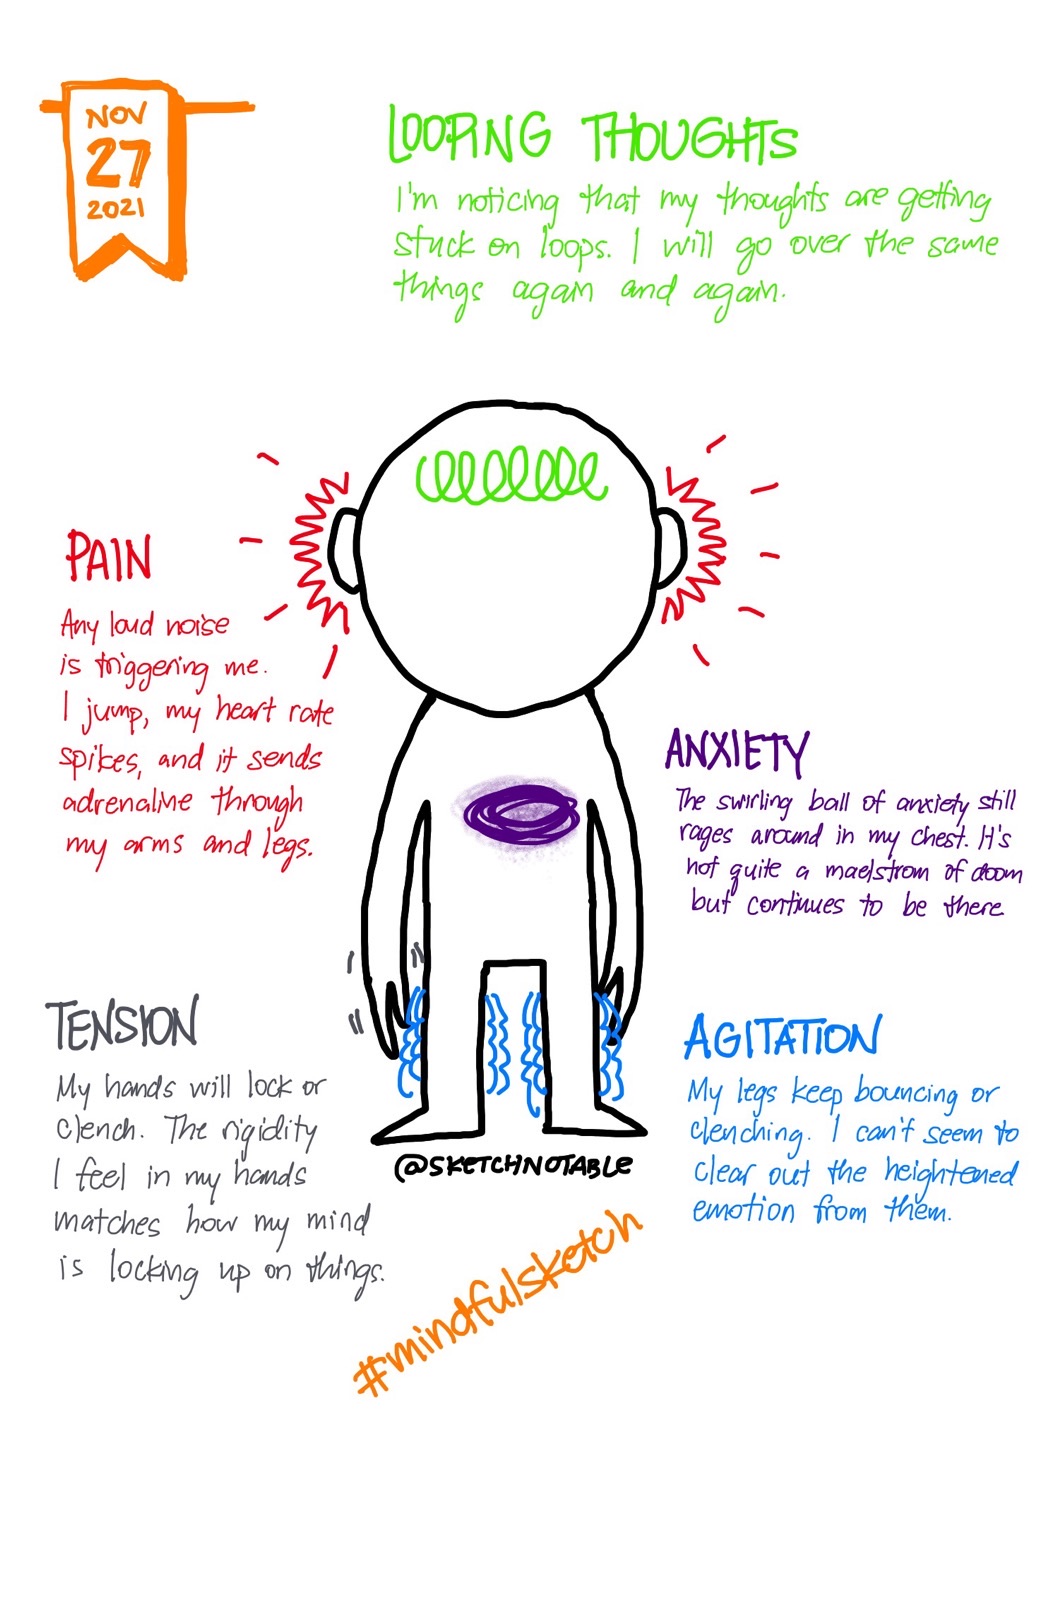 NOV
27
2021
LOOPING THOUGHTS
I'm noticing that my thoughts are getting
stuck on loops. I will go over the same
things again and again.
PAIN
Any loud noise
is triggering me.
I jump, my heart rate
spikes, and it sends
adrenaline through
my arms and legs.
ANXIETY
The swirling ball of anxiety still
rages around in my chest. It's
not quite a maelstrom of doom
but continues to be there
TENSION
My hands will lock or
clench. The rigidity
I feel in my hands
matches how my mind
is locking up on things.
AGITATION
My legs keep bouncing or
clenching. I can't seem to
clear out the heightened
emotion from them.
@SKETCHNOTABLE
#mindfulsketch